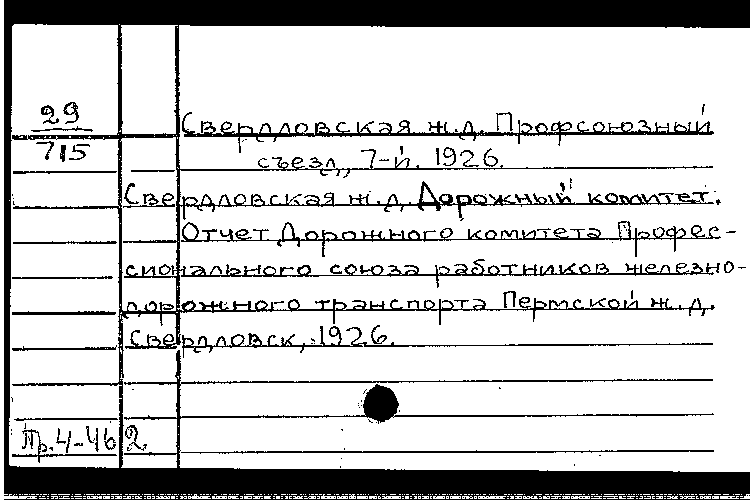 29
715
Свердловская ж.д. Профсоюзный
съезд, 7-й. 1926.
Свердловская ж.д. Дорожный комитет.
Отчет Дорожного комитета Профес-
сионального союза работников железно-
дорожного транспорта Пермской ж.д.
Свердловск, 1926.
Пр. 4-46 2.